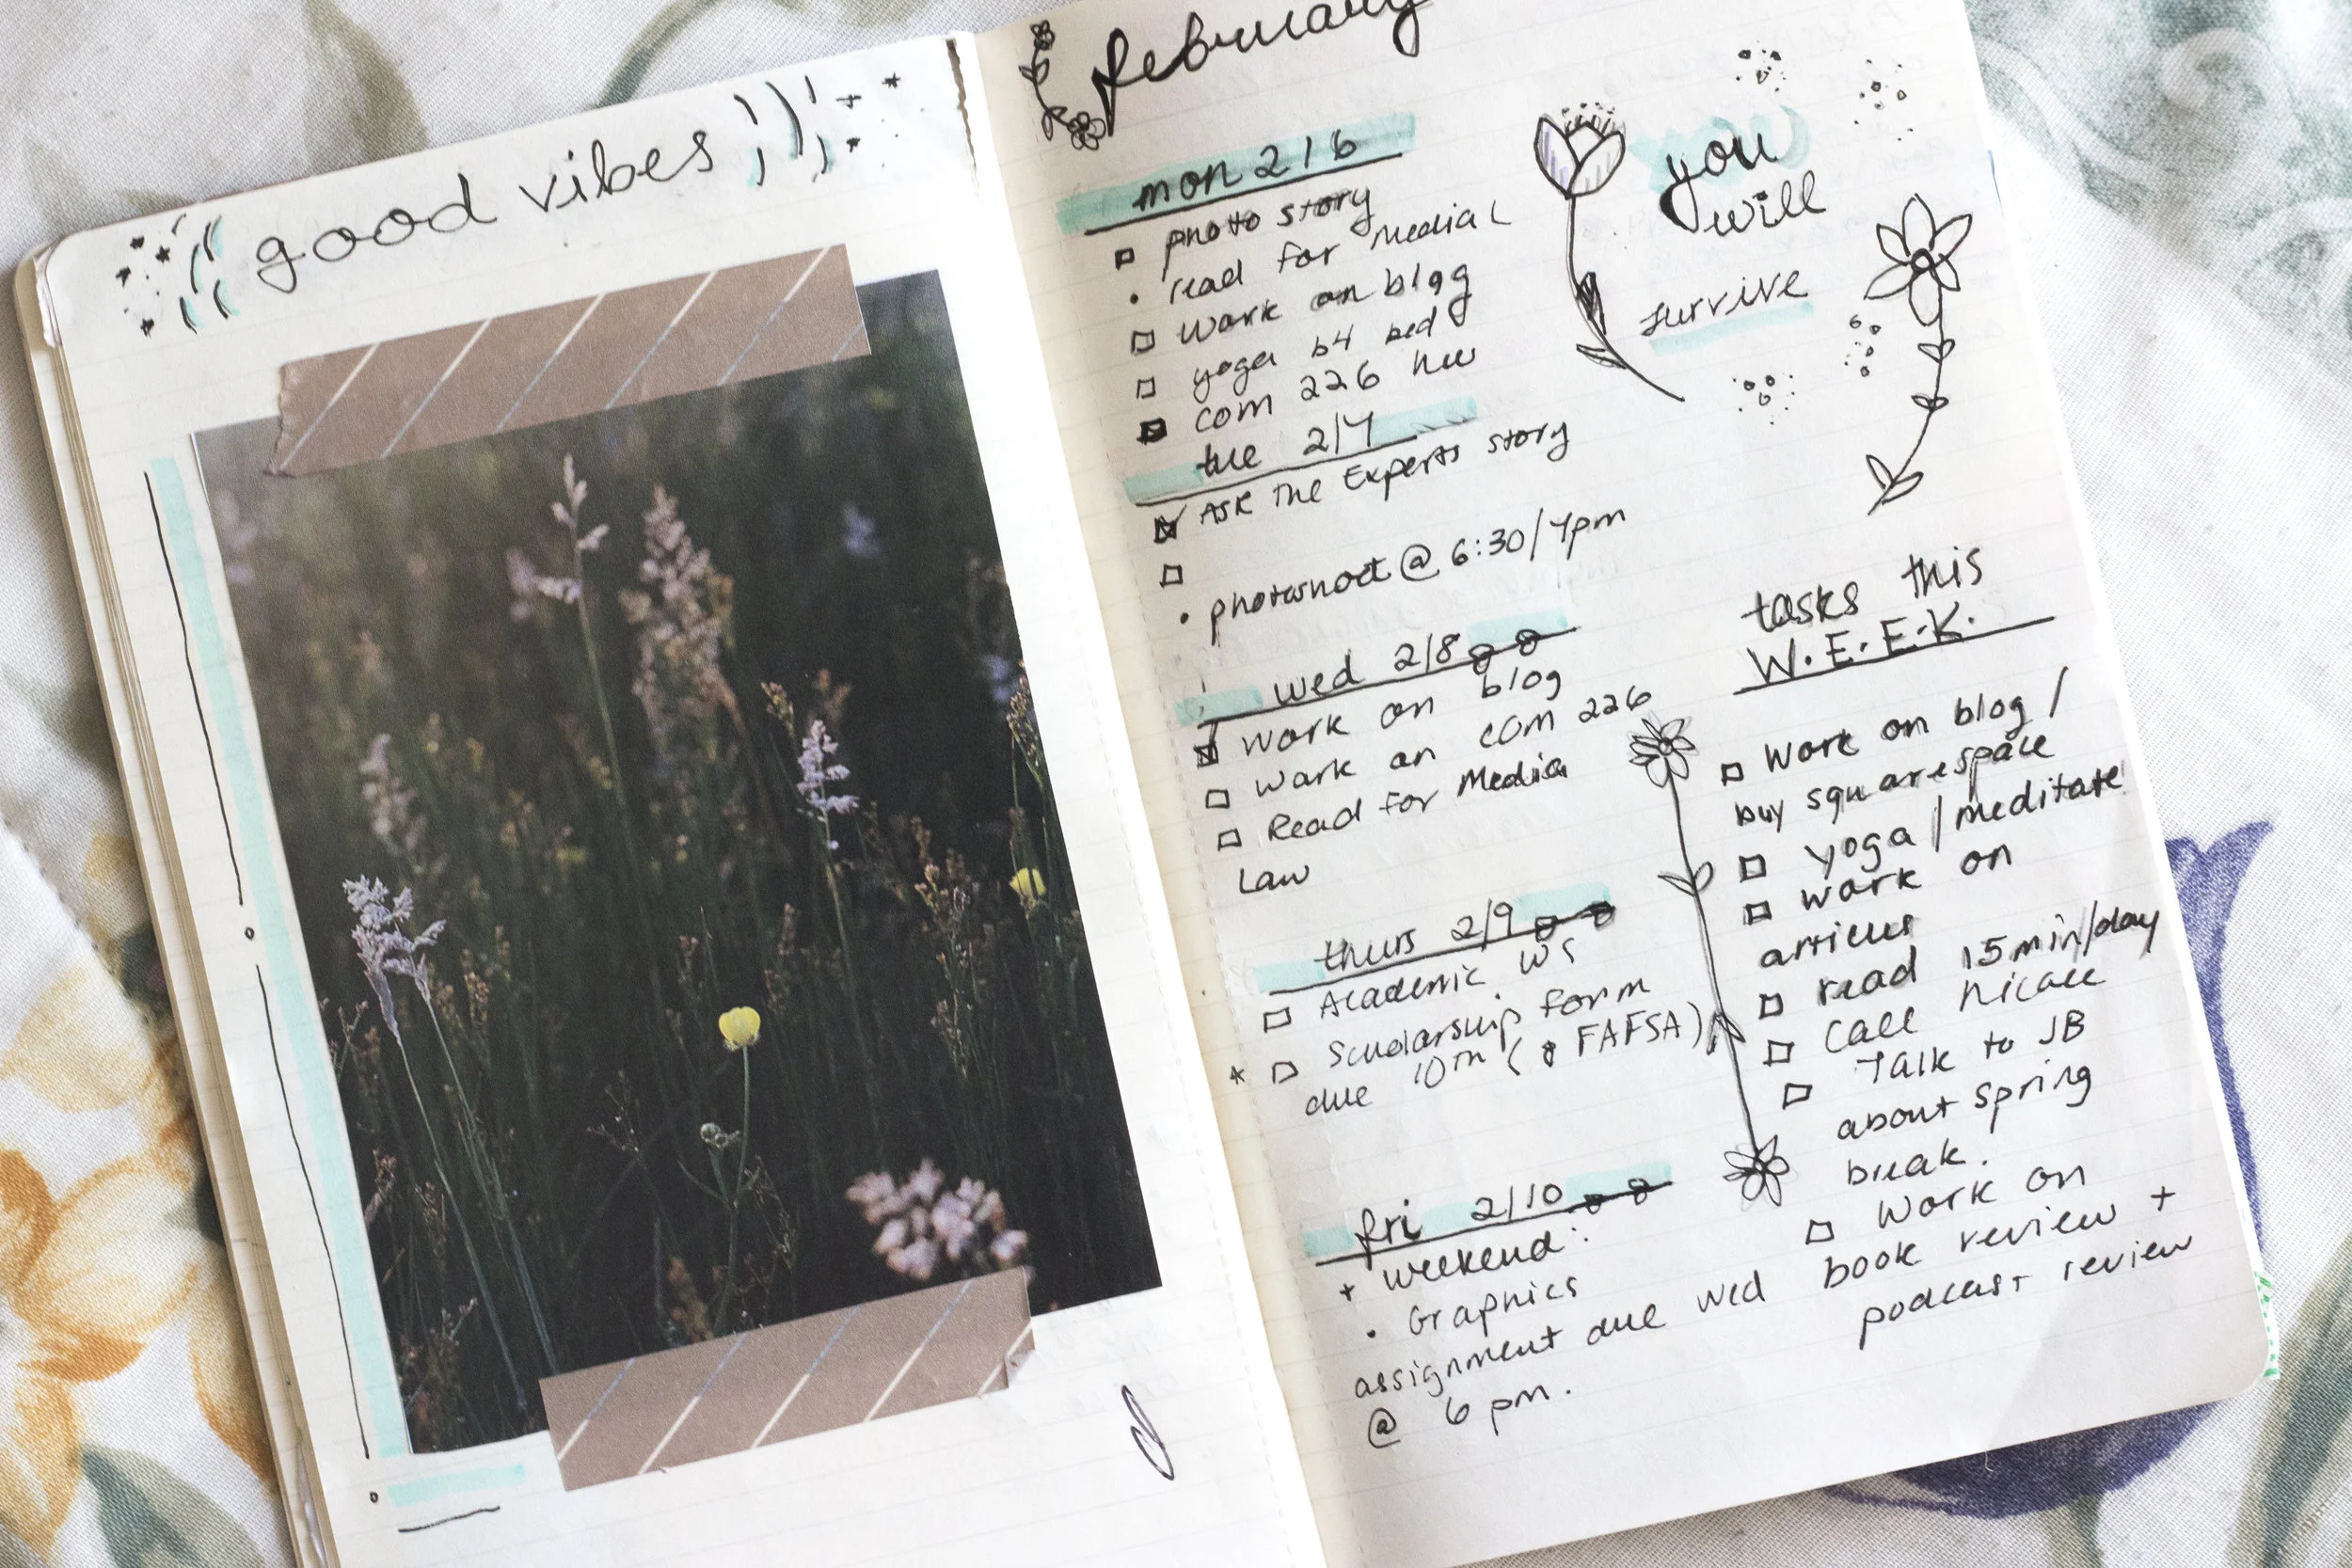 good vibes
february
mon 2/6
photo story
read for Media L
work on blog
yoga b4 bed
com 226 hw
tue 2/7
Ask The Experts story
photoshoot @ 6:30/7pm
wed 2/8
work on blog
work on com 226
Read for Media
Law
thurs 2/9
Academic WS
* Scholarship form
due 10th ( FAFSA)
fri 2/10
+ weekend:
• Graphics
assignment due wed
@ 6 pm.
you
will
survive
tasks this
W.E.E.K.
Work on blog /
buy squarespace
yoga / meditate
work on
articles
read 15 min/day
Call Nicole
Talk to JB
about spring
break.
Work on
book review +
podcast review